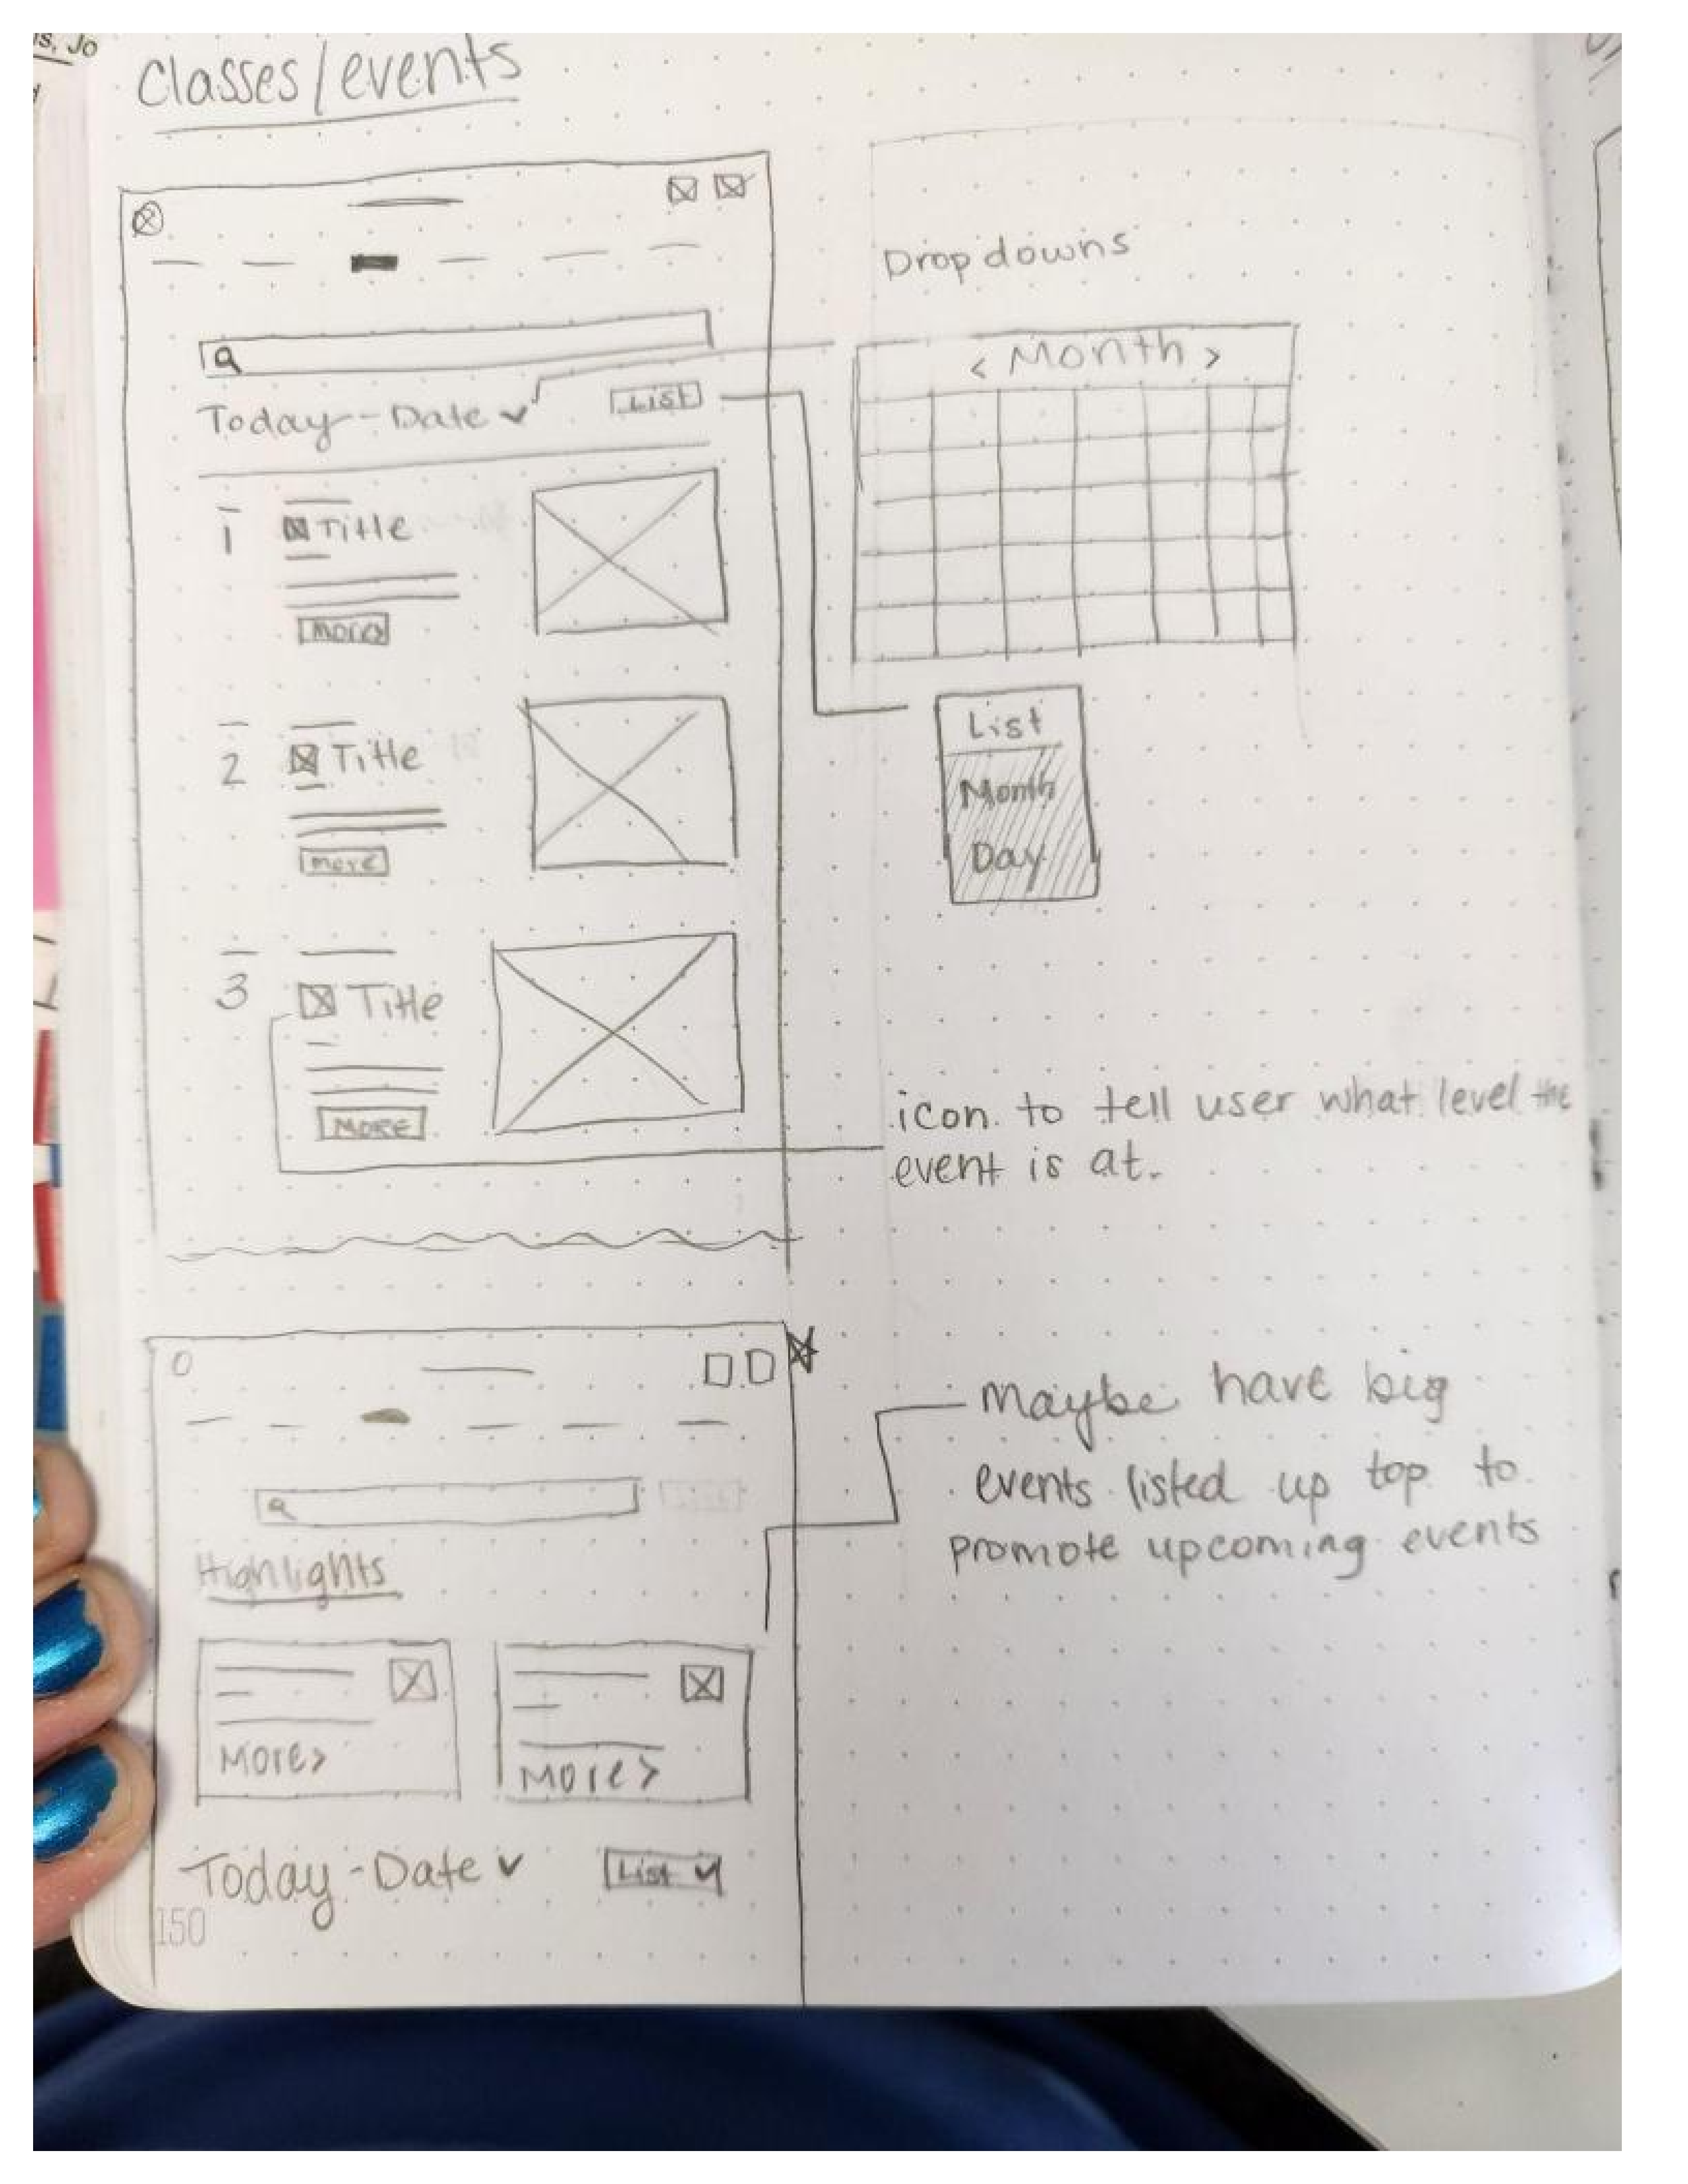 s, Jo
Classes/events
Today-Date
List
1
Title
More>
2
Title
more
3
Title
MORE
Dropdowns
< Month >
List
Month
Day
icon to tell user what level the
event is at.
Highlights
More>
More>
Today-Date
List
150
Maybe have big
events listed up top to
promote upcoming events